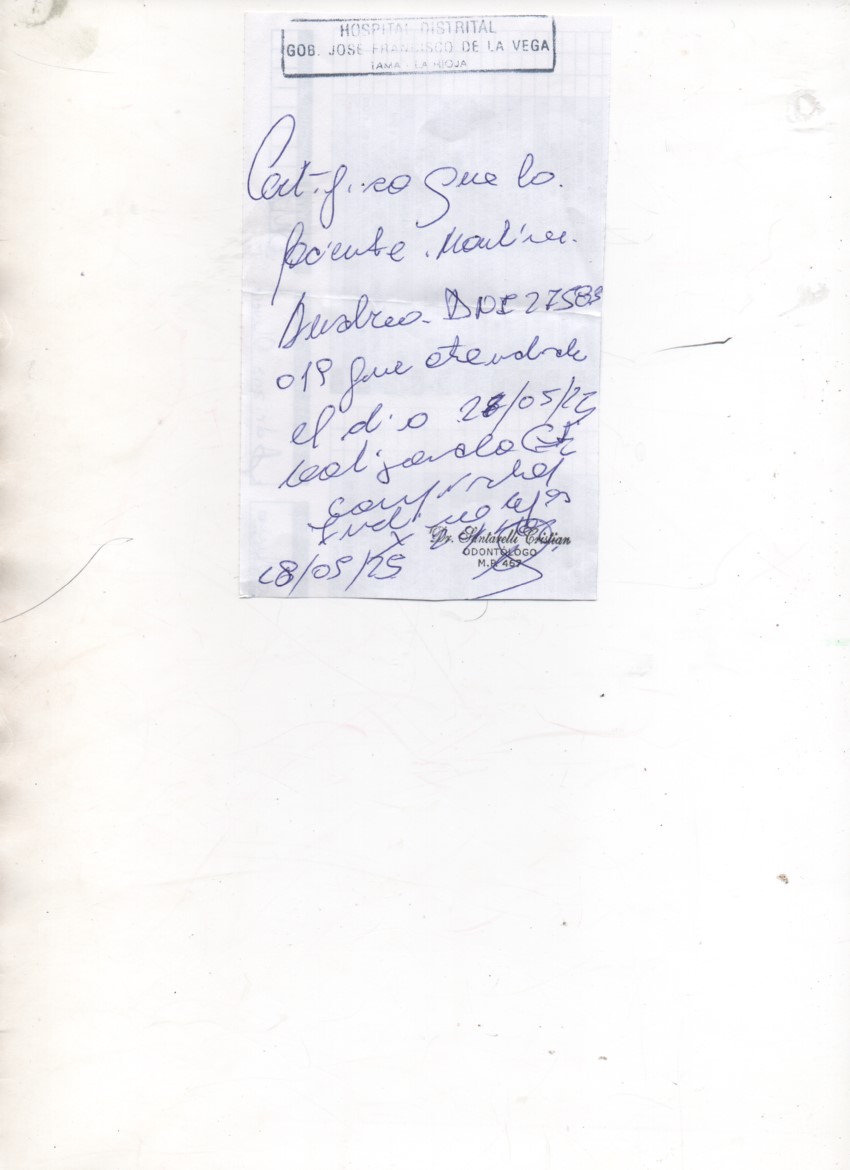 HOSPITAL DISTRITAL
GOB. JOSE FRANCISCO DE LA VEGA
TAMA - LA RIOJA
Certifico que la
paciente Martinez
Andrea DNI 27583
019 fue atendida
el día 28/05/25
realizando
control
28/05/25
Dr. Santarelli Cristian
ODONTOLOGO
M.P. 467